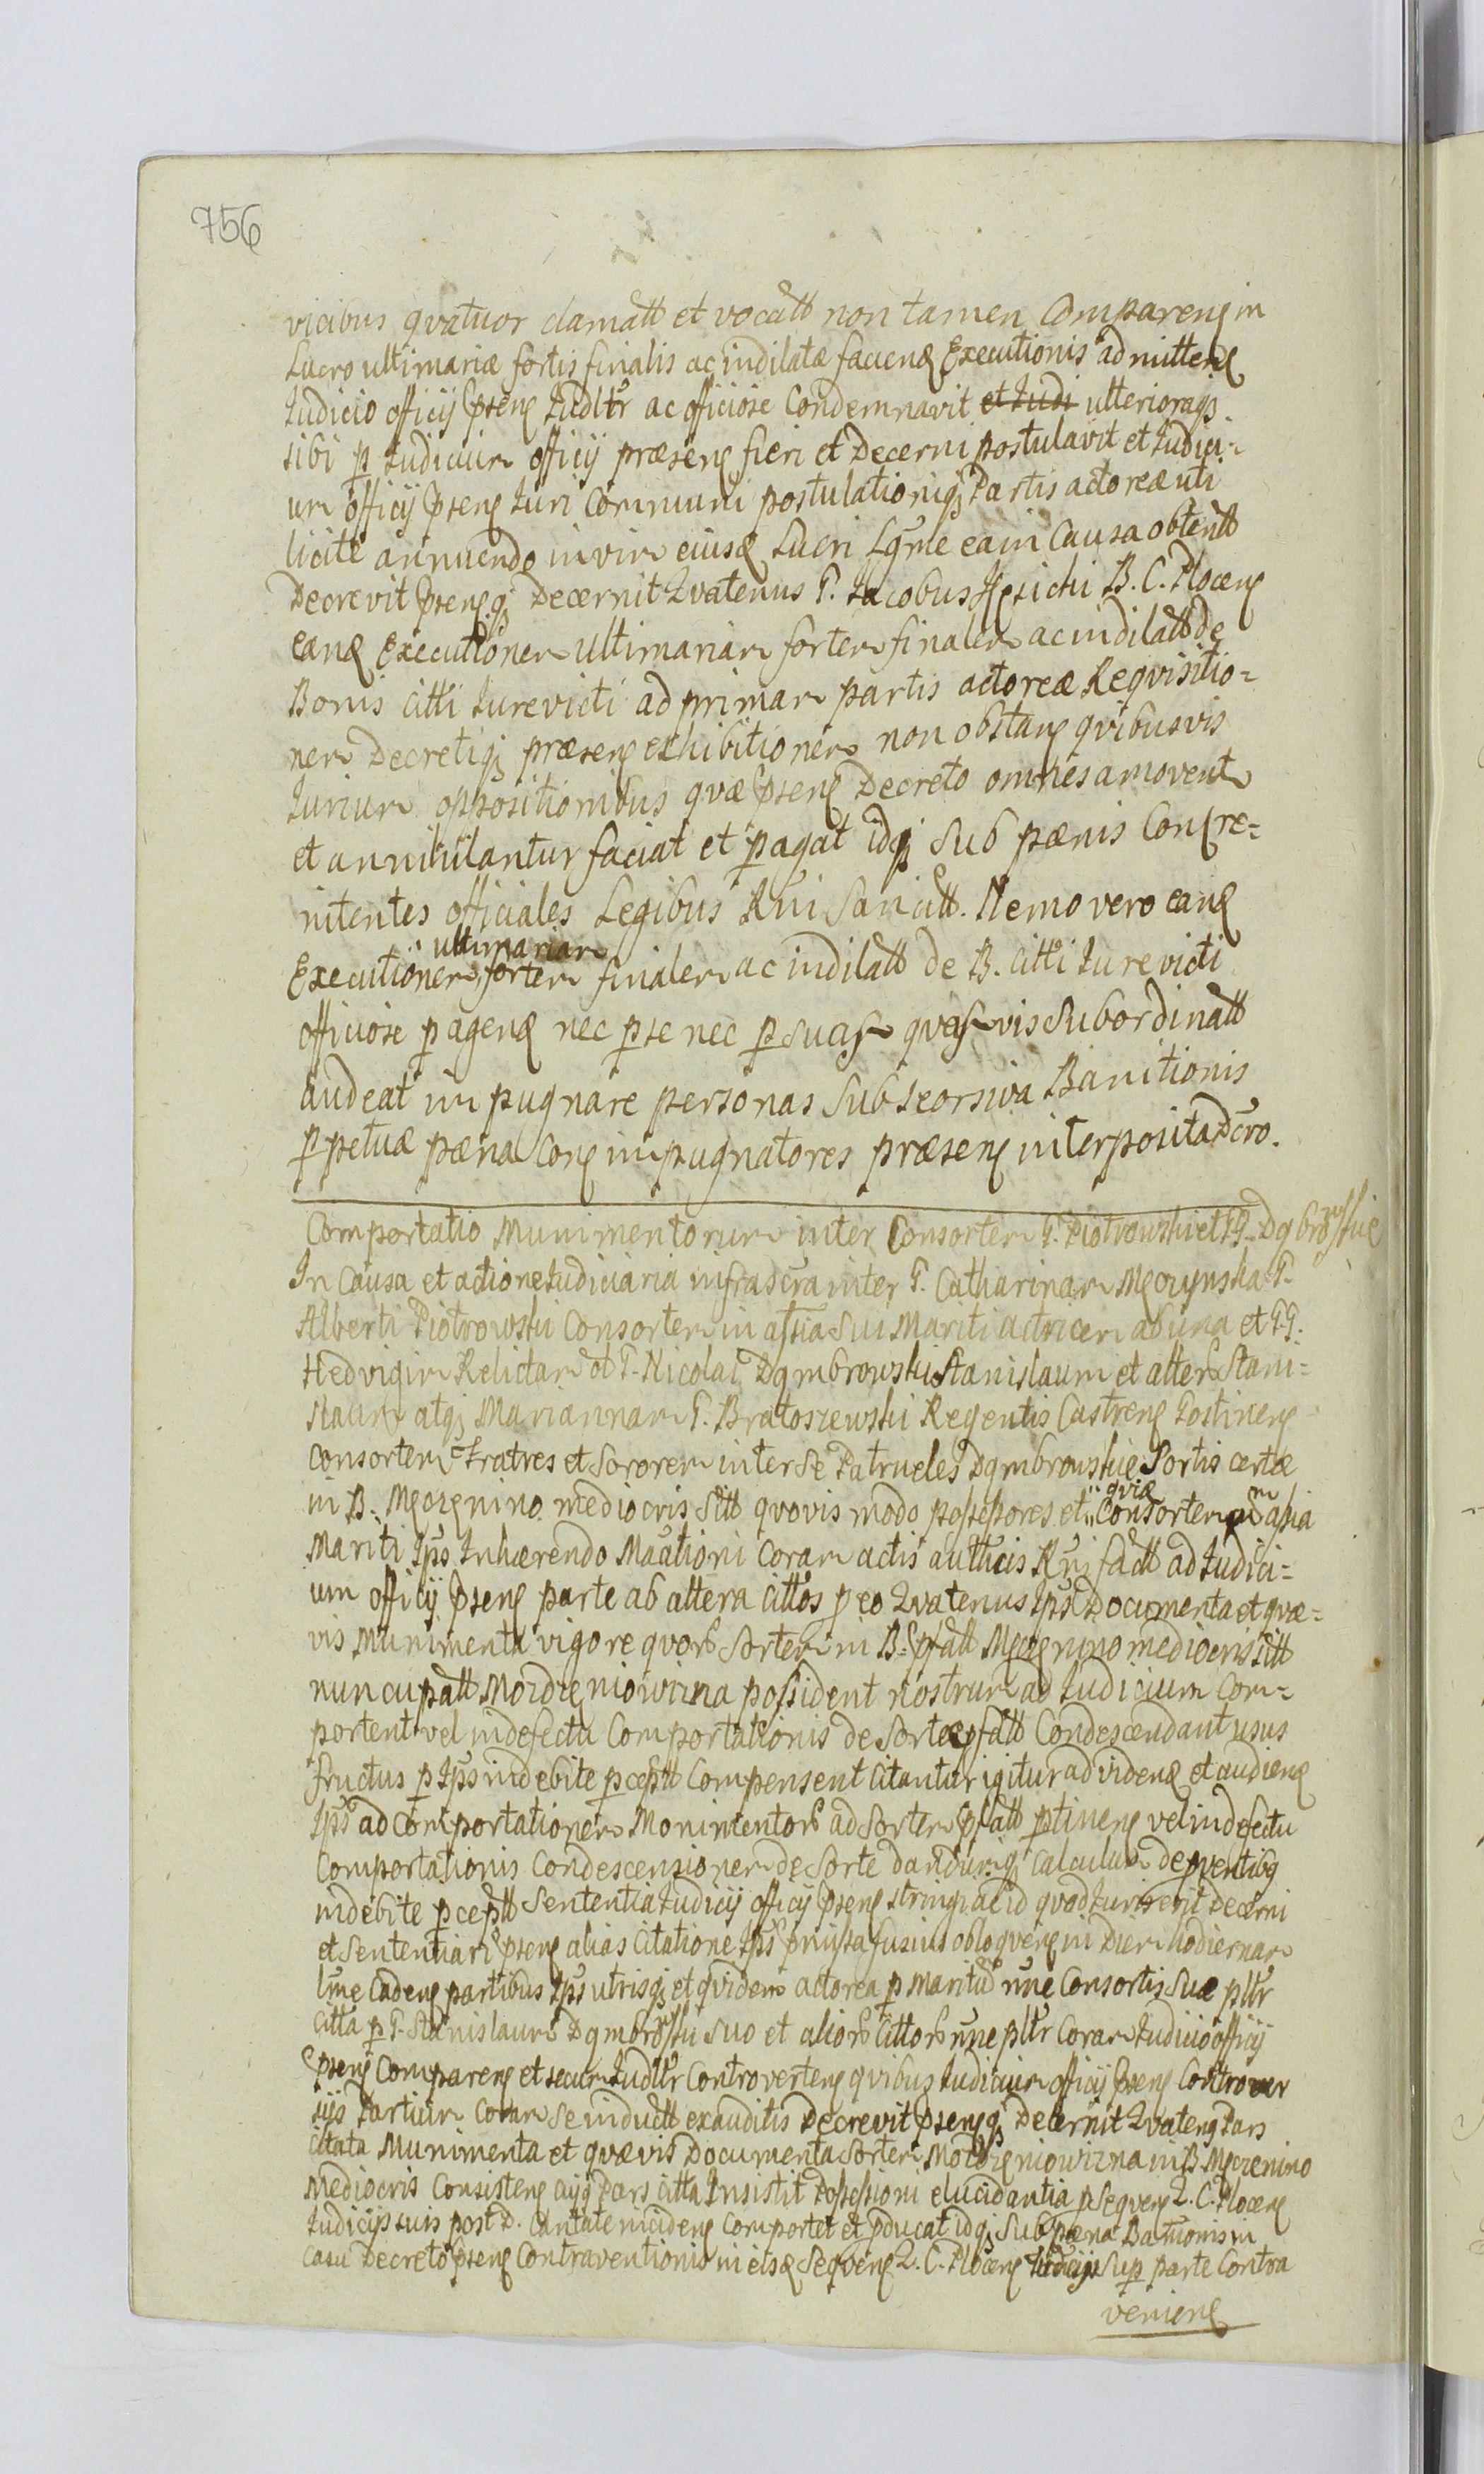 756
vicibus qvatuor clamatt et vocatt non tamen Compareng in
Lucro ultimariæ fortis finalis ac indilatæ faciend Executionis admittend
Judicio officij pseng Judltr ac officiose Condemnavit et Judi ulteriorag
sibi p Judicium officij præseng fieri et Decerni postulavit et Judici=
um officij pseng Juri Communi postulationiq Partis actoreæ uti
licite annuendo in vim eiusd Lucri Lgme ea in Causa obtentt
Decrevit psengq Decernit Qvatenus G. Jacobus B. C. Ploceng
eand Executionem ultimariam fortem finalem ac indilatt de
Bonis citti Jurevicti ad primam partis actoreæ Reqvisitio=
nem Decretiq præseng exhibitionem non obstang qvibusvis
Jurium oppositionibus qvæ pseng Decreto omnes amovent
et annihilantur faciat et pagat idq sub pænis Con͡tre=
nitentes officiales Legibus Rni Sancitt. Nemo vero eand
ultimariam
Executionem fortem finalem ac indilatt de B. citti Jurevicti
officiose pagend nec p se nec p suas qvasvis subordinatt
audeat impugnare personas sub seorsiva Banitionis
ppetuæ pæna Cong impugnatores præseng interposita Dcro.
Comportatio Munimentorum inter Consortem G. Piotrowski et GG. Dąbrowskie
In Causa et actione Judiciaria infrascra inter G. Catharinam Męczynska G.
Alberti Piotrowski Consortem in asstia sui Mariti actricem ab una et GG.
Hedvigim Relictam ol G. Nicolai Dąmbrowski Stanislaum et alterum Stani=
slaum atq Mariannam G. Bratoszewski Regentis Castreng Gostineng
Consortem Fratres et Sororem inter se Patrueles Dąmbrowskie Sortis certæ
qviæ m
in B. Męczenino mediocris sitt qvovis modo possessores et Consortem in assia
Mariti Ips Inhærendo Maationi Coram actis authcis Rni fact ad Judici=
um officij pseng parte ab altera cittos p eo Qvatenus Ips Documenta et qvæ=
vis munimenta vigore qvorum Sortem in B. pfatt Męczenino mediocris sitt
nuncupatt Mozdzeniowizna possident nostrum ad Judicium Com=
portent vel in defectu Comportationis de Sorte pfatt Condescendant usus
fructus p Ips indebite pceptt Compensent citantur igitur ad vidend et audiend
Ips ad Comportationem Monimentorum ad Sortem pfatt ptineng vel in defectu
Comportationis Condescensionem de Sorte dandumq Calculum de pventibq
indebite pceptt Sententia Judicij officij pseng stringi ac id qvod Juris erit Decerni
et Sententiari pseng alias Citatione Ips pmissa fusius obloqveng in Diem hodiernam
lgme Cadeng partibus Ips utrisq et qvidem actorea p maritum nne Consortis suæ pltr
citta p G. Stanislaum Dąmbrowski suo et aliorum cittorum nne pltr Coram Judicio officij
pseng Compareng et secum Judltr Controverteng qvibus Judicium officij pseng Controver
sijs Partium Coram se inductt exauditis Decrevit psengq Decernit Qvateng Pars
citata Munimenta et qvævis Documenta Sortem Mozdzeniowizna in B. Męczenino
Mediocris Consisteng cuiq Pars citta Insistit Possessioni elucidantia p seqveng Q. C. Ploceng
Judicijs suis post D. Cantate incideng Comportet et pducat idq sub pæna Banionis in
casu Decreto pseng Contraventionis in eisd seqveng Q. C. Ploceng Judicijs sup parte Contra
venieng